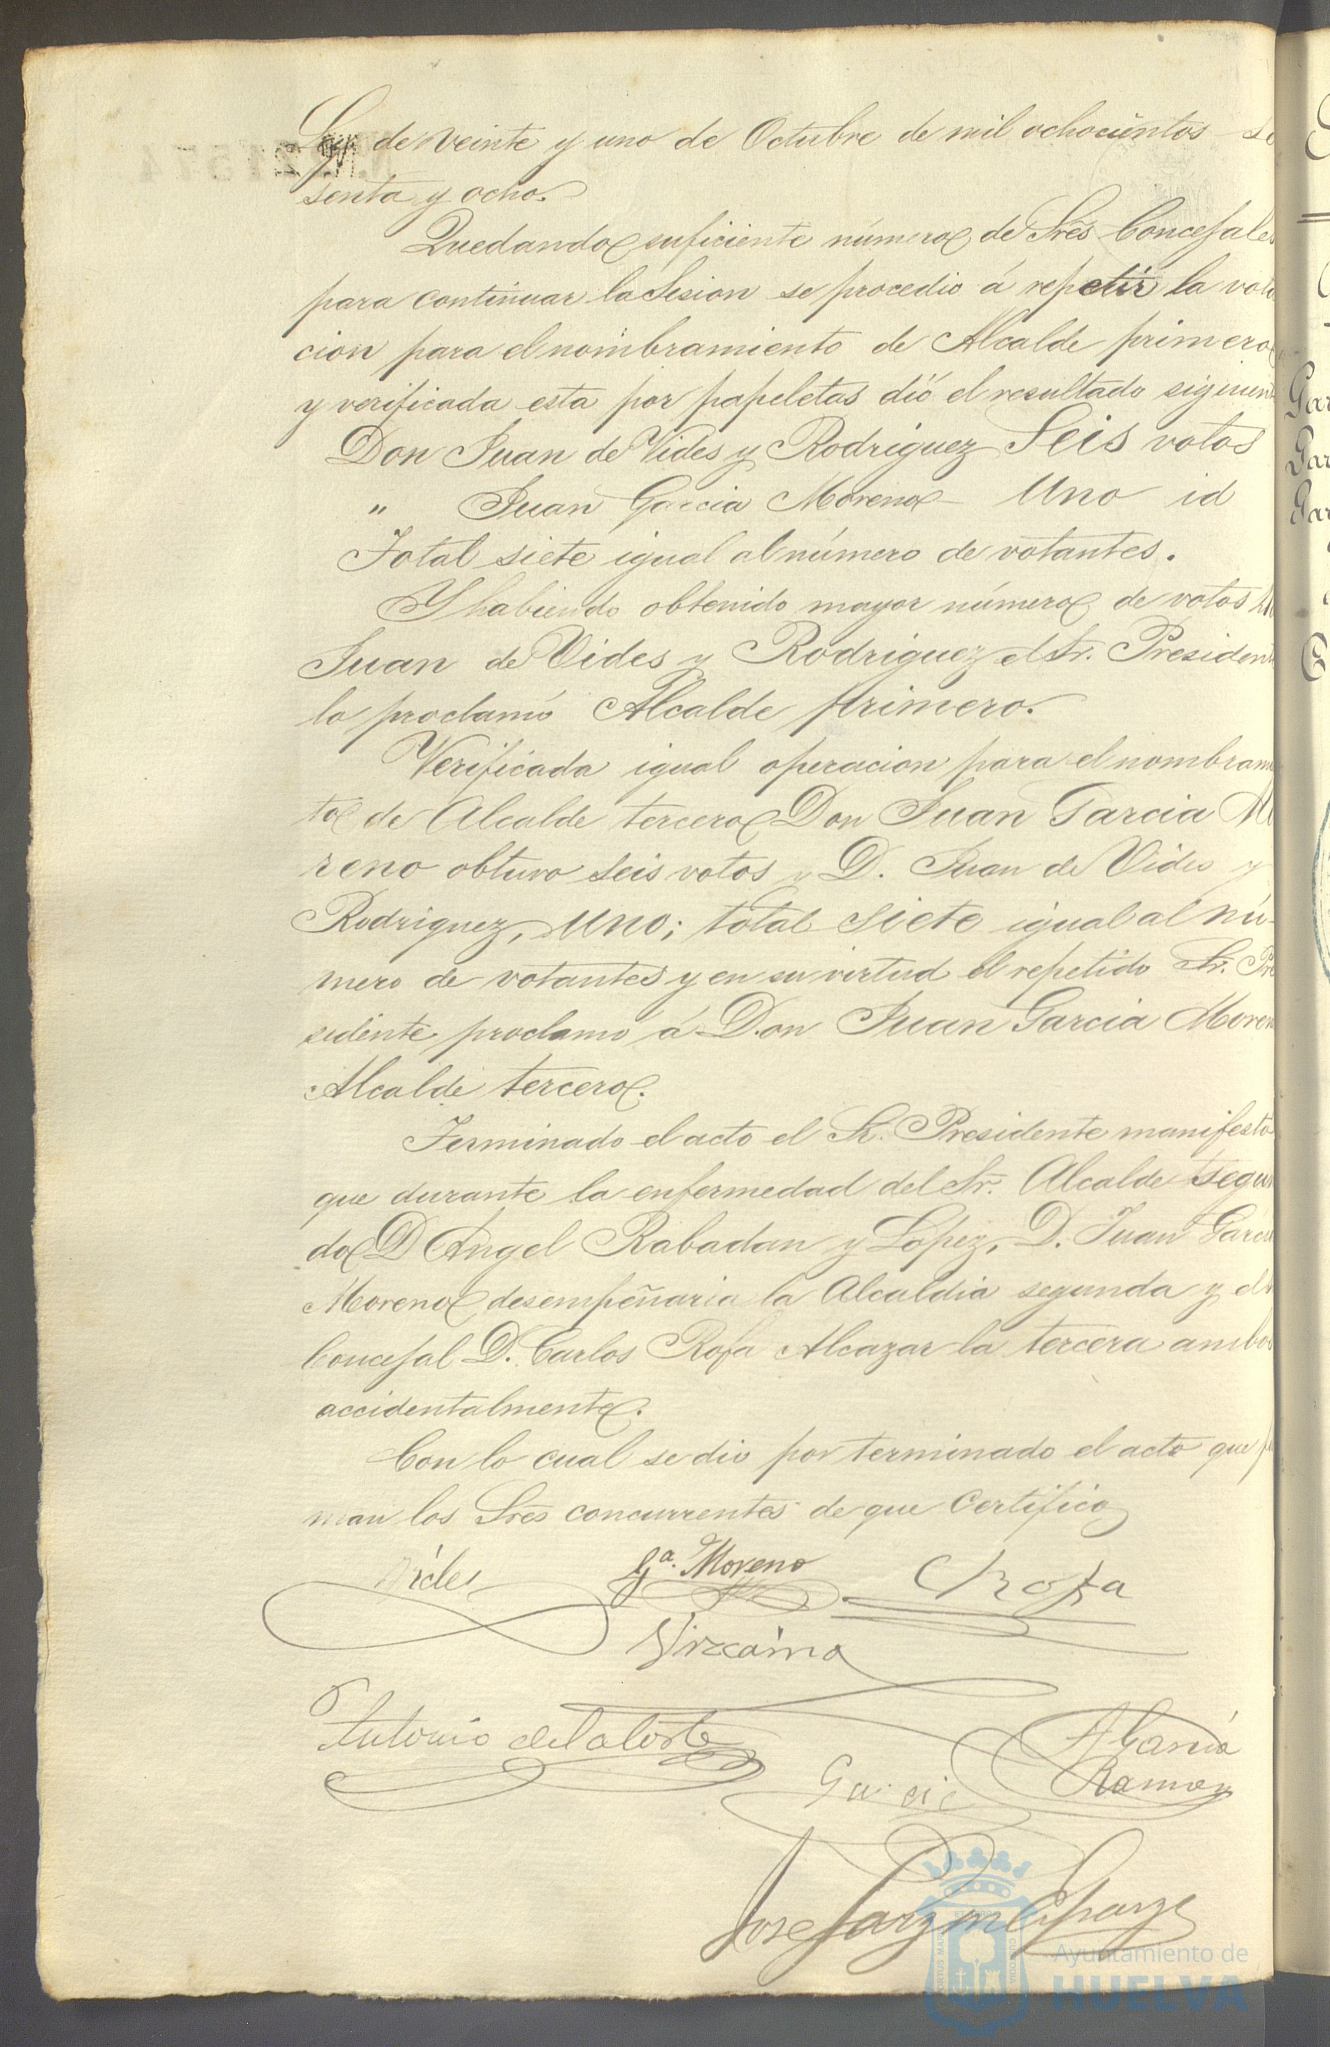 Ley de veinte y uno de Octubre de mil ochocientos se
senta y ocho.
Quedando suficiente número de Sres Concejales
para continuar la Sesion se procedio á repetir la vota
cion para el nombramiento de Alcalde primero
y verificada esta por papeletas dió el resultado siguiente
Don Juan de Vides y Rodriguez Seis votos
" Juan Garcia Moreno Uno id
Total siete igual al número de votantes.
Y habiendo obtenido mayor número de votos
Juan de Vides y Rodriguez el Sr. President
lo proclamó Alcalde primero.
Verificada igual operacion para el nombrami
to de Alcalde tercero Don Juan Garcia Mo
reno obtuvo seis votos y D. Juan de Vides y
Rodriguez, uno; total siete igual al nú-
mero de votantes y en su virtud el repetido Sr. Pre
sidente proclamo á Don Juan Garcia Moreno
Alcalde tercero.
Terminado el acto el Sr. Presidente manifesto
que durante la enfermedad del Sr. Alcalde segun
do D Angel Rabadan y Lopez, D. Juan Garcia
Moreno desempeñaria la Alcaldia segunda y el
Concejal D. Carlos Rofa Alcazar la tercera ambos
accidentalmente.
Con lo cual se dio por terminado el acto que fir
man los Sres concurrentes de que Certifico
Vides Ga. Moreno C Rofa
Vizcaino
Antonio de la Corte A Garcia
Garcia Ramos
Jose Garzon Esparza
Ayuntamiento de
HUELVA